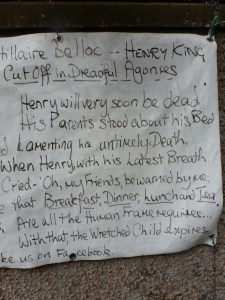 illaire Belloc -- HENRY KING
Cut Off in Dreadful Agonies
Henry will very soon be dead
His Parents stood about his Bed
d Lamenting his untimely Death.
When Henry, with his Latest Breath
Cred- Oh, my Friends, be warned by me,
e that Breakfast, Dinner, Lunch and Tea
Are all the Human Frame requires...
With that, the Wretched Child expires
ke us on Facebook.